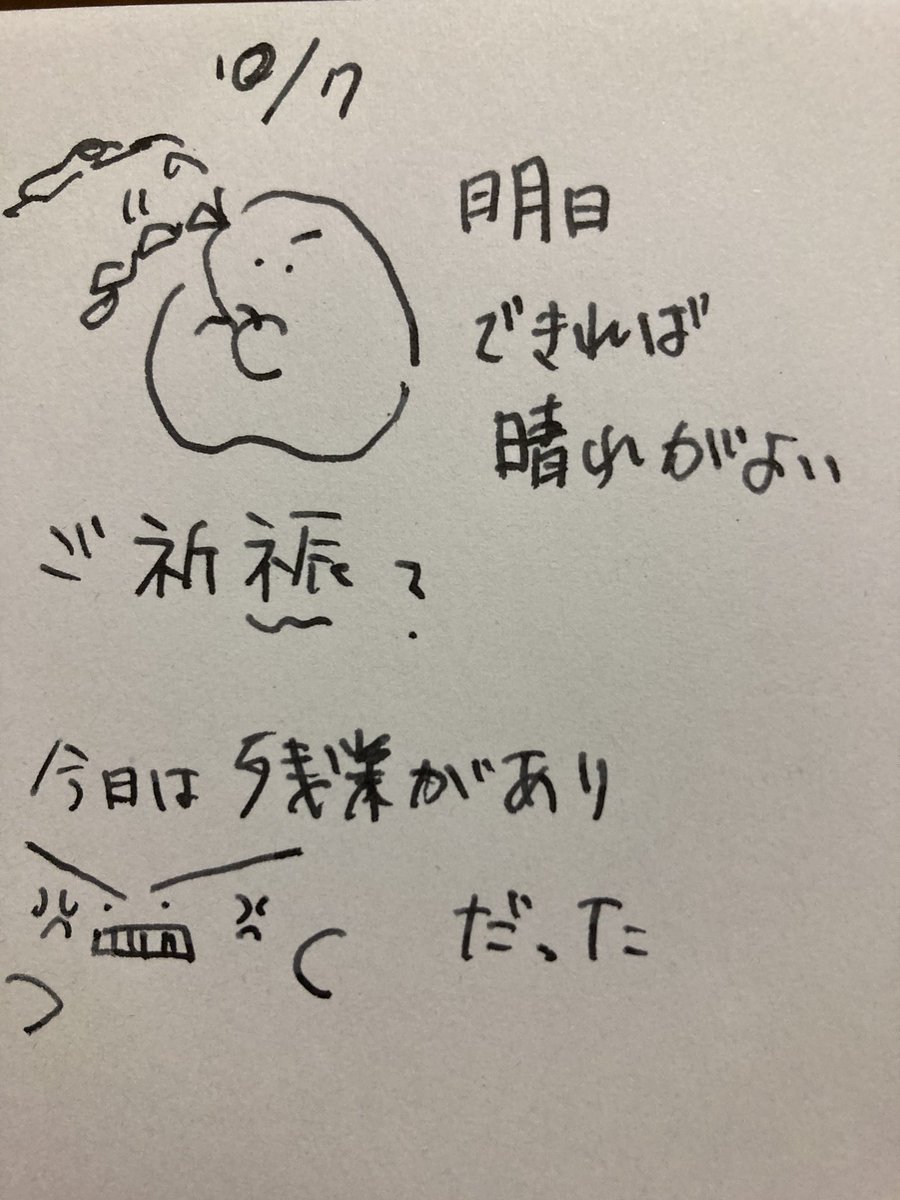 10/7
明日
できれば
晴れがよい
ご祈祳?
今日は残業があり
だった